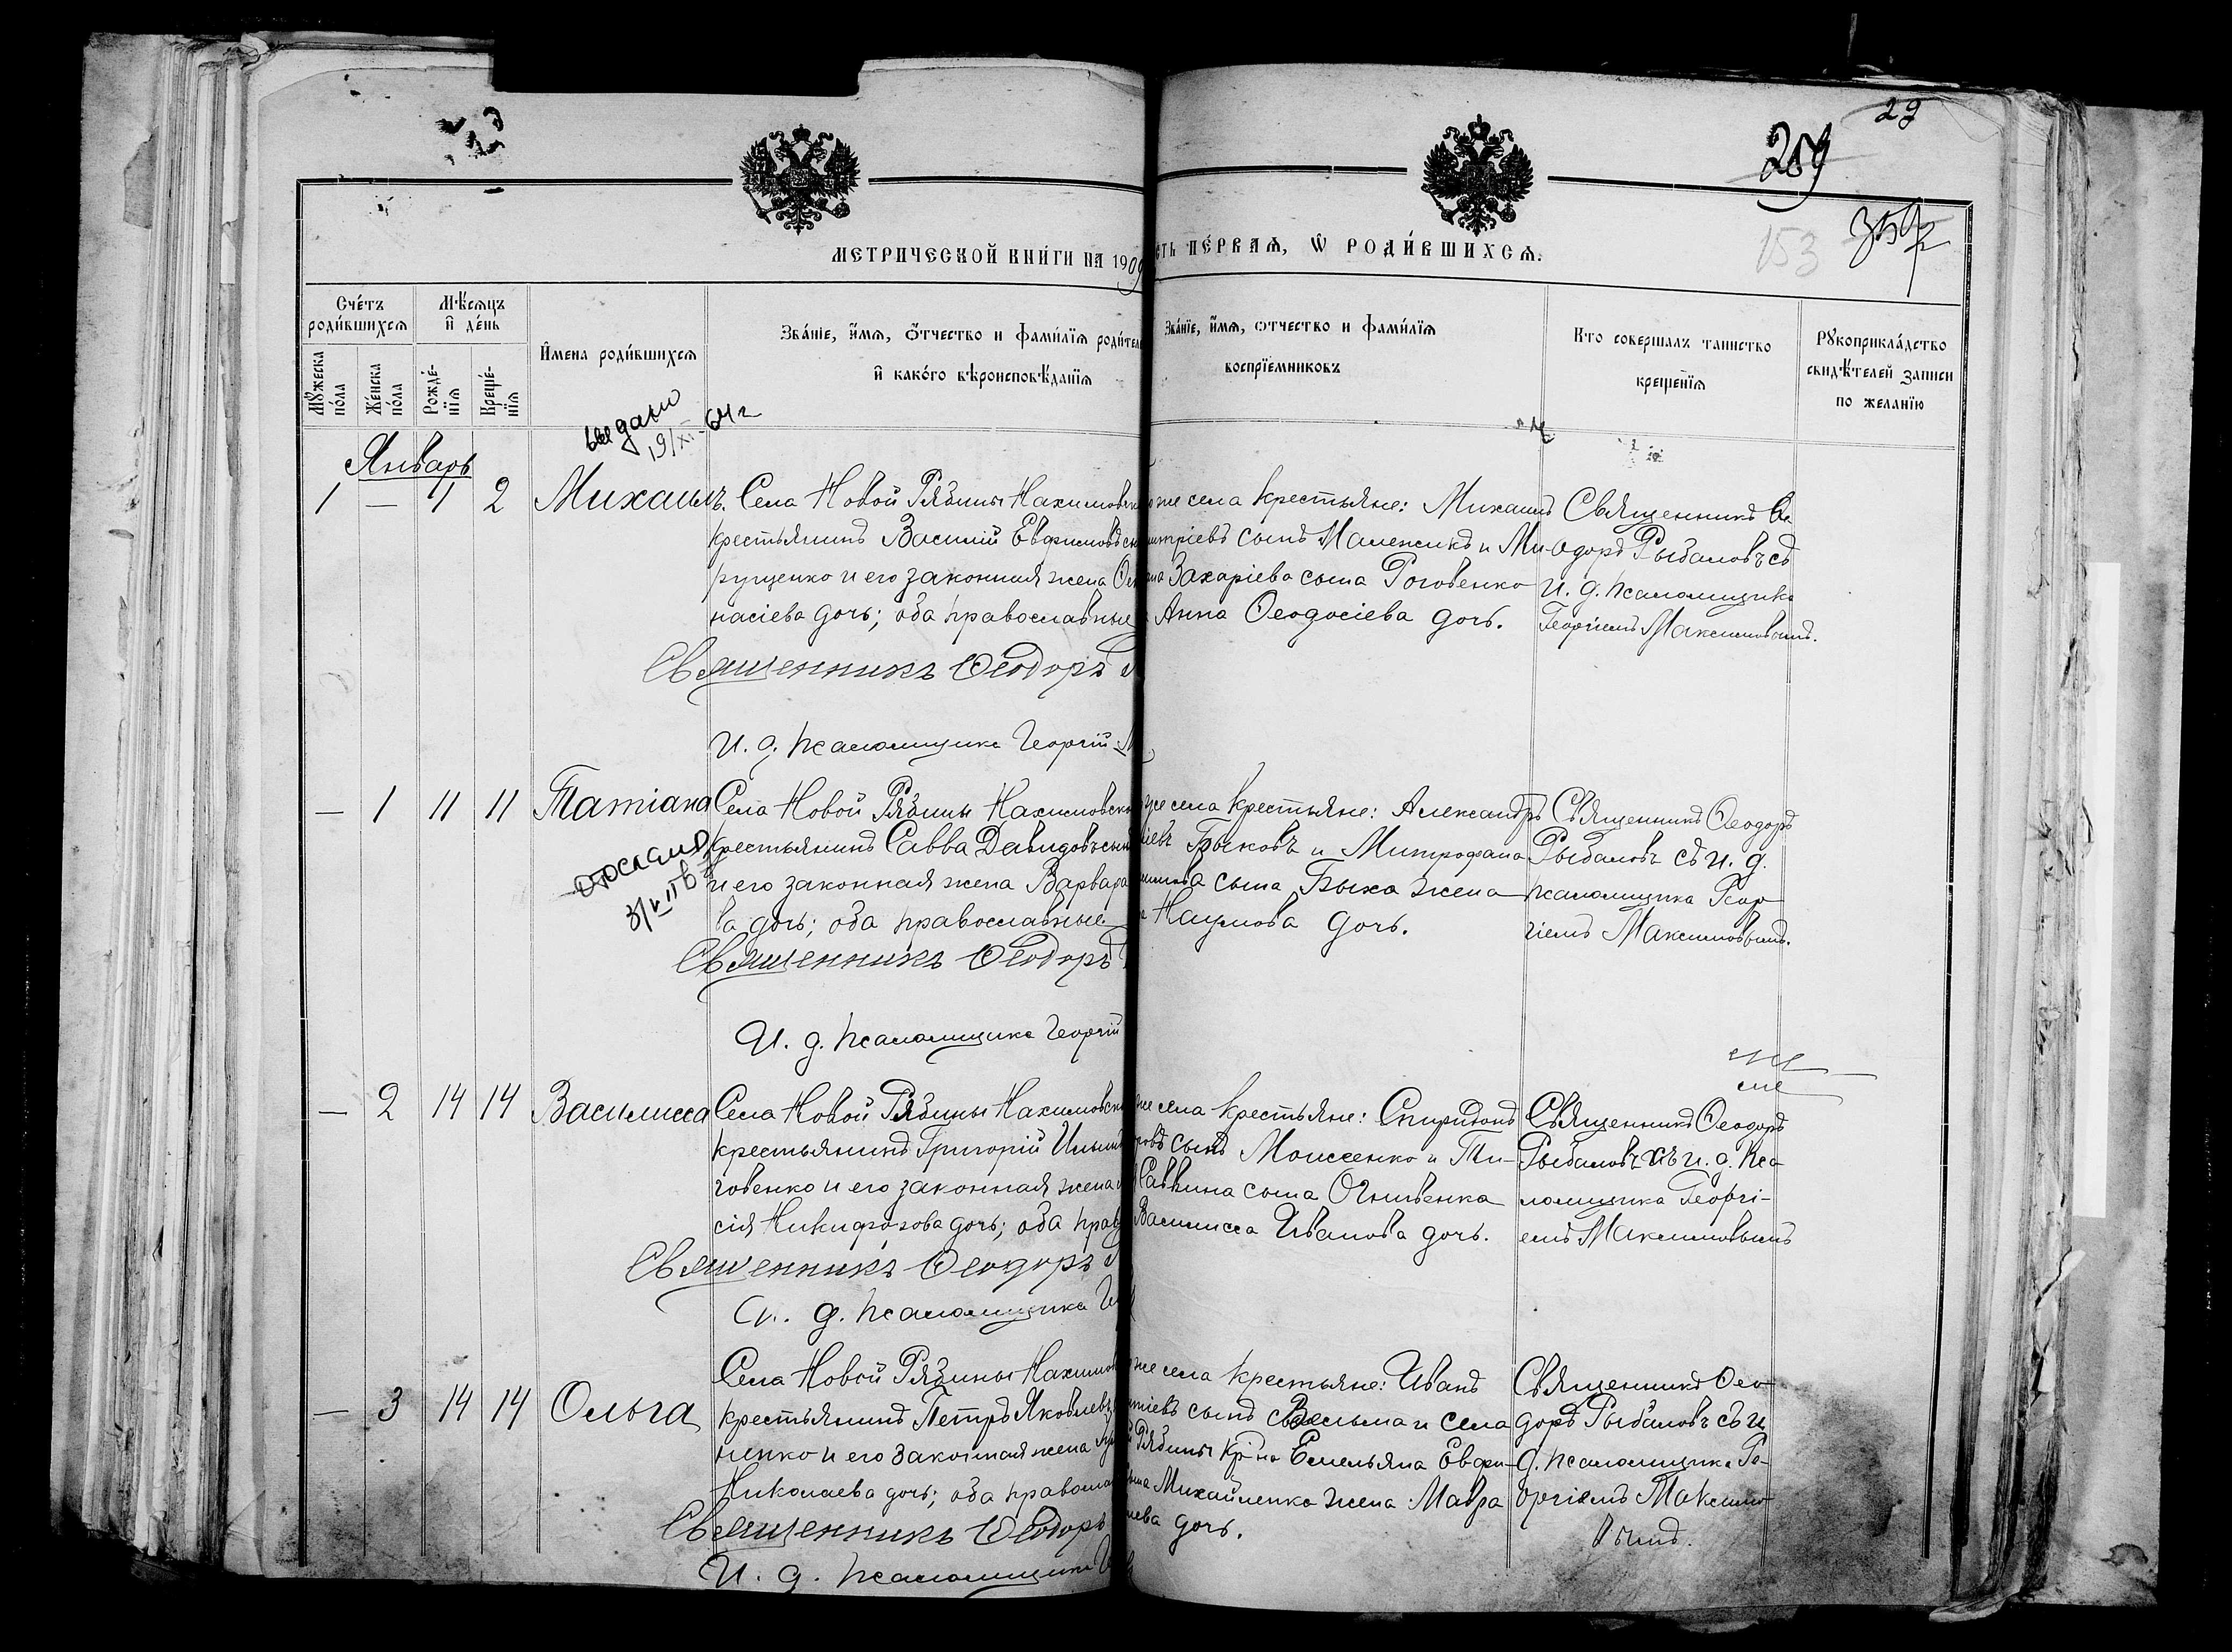 29
209
153
МЕТРИЧЕСКОЙ КНИ́ГИ НА 1909
СТЬ ПЕ́РВАЯ, Ѿ РОДИ́ВШИХСЯ.
Сче́тъ роди́вшихся
Мѣ́сяцъ и҆ де́нь
И҆мена роди́вшихся
Зва́нїе, и҆́мя, ѻ҆́тчество и фами́лїя родител
и҆ како́го вѣроисповѣ́данїя
Зва́нїе, и҆́мя, ѻтчество и фами́лїя
воспрїемниковъ
Кто совершалъ таинство
крещенїя
Рꙋкоприкла́дство
свидѣ́телей записи
по желанїю
Мꙋ́жеска по́ла
Же́нска по́ла
Рожде́нїя
Креще́нїя
выдано
19/XI-64 г
Январь
1 — 1 2 Михаилъ. Села Новой Рябины Нахимовск
крестьянинъ Василій Евфимовъ сы
рущенко и его законная жена
насіева дочь; оба православные
Священникъ Ѳеодоръ
И. д. псаломщика Георгій
же села крестьяне: Михаилъ
митріевъ сынъ Маленикъ и Ми-
Захаріева сына Роговенко
Анна Ѳеодосіева дочь.
Священникъ Ѳе
одоръ Рыбаловъ съ
И. д. псаломщика
Георгіемъ Максимовымъ.
— 1 11 11 Татіана Села Новой Рябины Нахимовско
крестьянинъ Савва Давидовъ сын
и его законная жена Варвара
ва дочь; оба православные
отослана
Священникъ Ѳеодоръ
И. д. псаломщика Георгій
же села крестьяне: Александръ
Бычковъ и Митрофана
сына Быка жена
Наумова дочь.
Священникъ Ѳеодоръ
Рыбаловъ съ и. д.
псаломщика Геор
гіемъ Максимовымъ.
— 2 14 14 Василисса Села Новой Рябины Нахимовск
крестьянинъ Григорій Ильинъ
говенко и его законная жена
сія Никифорова дочь; оба прав
Священникъ Ѳеодоръ
И. д. псаломщика
же села крестьяне: Спиридонъ
ровъ сынъ Моисеенко и Ти-
Саввина сына Огнивенка
Василисса Иванова дочь.
Священникъ Ѳеодоръ
Рыбаловъ съ и. д. пса
ломщика Георгі-
емъ Максимовымъ
— 3 14 14 Ольга
Села Новой Рябины Нахимов
крестьянинъ Петръ Яковлевъ
ненко и его законная жена
Николаева дочь; оба правосла
Священникъ Ѳеодоръ
И. д. псаломщика
же села крестьяне: Иванъ
тіевъ сынъ Весельма и села
Рябины кр-на Емельяна Евфи-
Михайленко жена Мавра
дочь.
Священникъ Ѳео
доръ Рыбаловъ съ и
д. псаломщика Ге-
оргіемъ Максимо
вымъ.